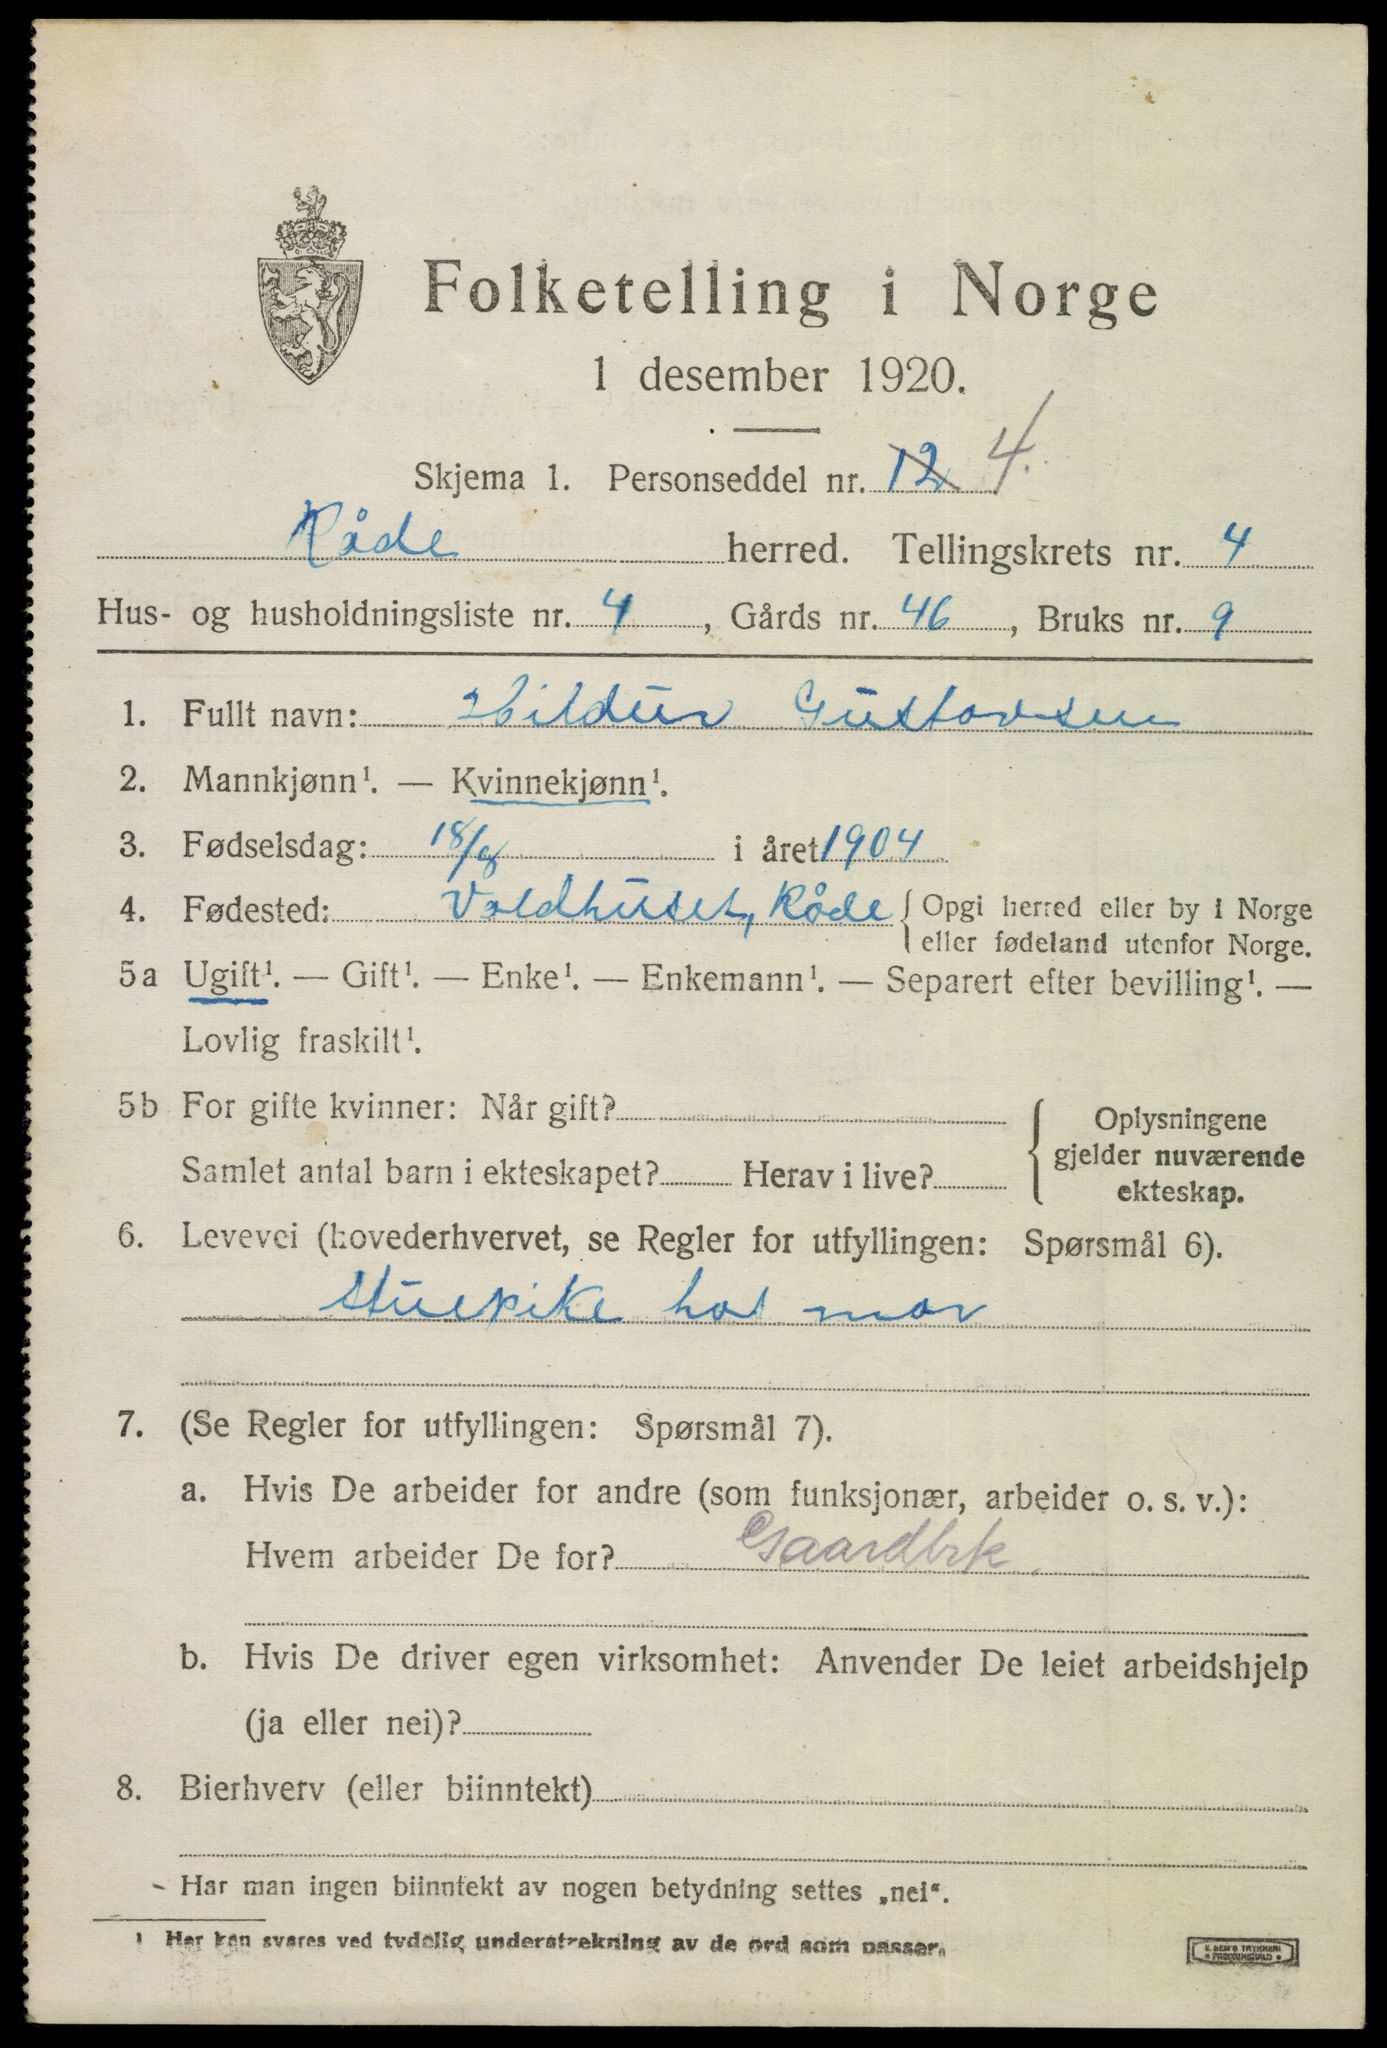 Folketelling i Norge
1 desember 1920.
Skjema 1. Personseddel nr. 12 4.
Råde herred. Tellingskrets nr. 4
Hus- og husholdningsliste nr. 4, Gårds nr. 46, Bruks nr. 9
1. Fullt navn: Hildur Gustavsen
2. Mannkjønn¹. — Kvinnekjønn¹.
3. Fødselsdag: 18/8 i året 1904
4. Fødested: Voldhuset, Råde { Opgi herred eller by i Norge
eller fødeland utenfor Norge.
5a Ugift¹. — Gift¹. — Enke¹. — Enkemann¹. — Separert efter bevilling¹. —
Lovlig fraskilt¹.
5b For gifte kvinner: Når gift? { Oplysningene
gjelder nuværende
ekteskap.
Samlet antal barn i ekteskapet? Herav i live?
6. Levevei (hovederhvervet, se Regler for utfyllingen: Spørsmål 6).
Stuepike hos mor
7. (Se Regler for utfyllingen: Spørsmål 7).
a. Hvis De arbeider for andre (som funksjonær, arbeider o. s. v.):
Hvem arbeider De for? Gaardbrk.
b. Hvis De driver egen virksomhet: Anvender De leiet arbeidshjelp
(ja eller nei)?
8. Bierhverv (eller biinntekt)
Har man ingen biinntekt av nogen betydning settes „nei“.
1 Her kan svares ved tydelig understrekning av de ord som passer.
TRYKKERI
FREDRIKSHALD